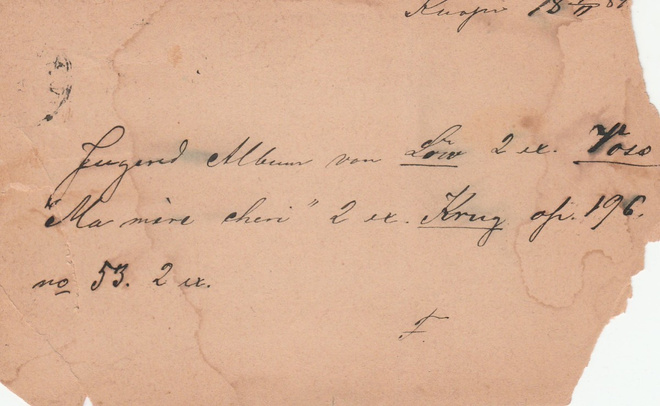 Kuopio 18 II 87
Jugend Album von Löw 2 ex. Voss
"Ma mère cheri" 2 ex. Krug op. 196.
no 53. 2 ex.
F.